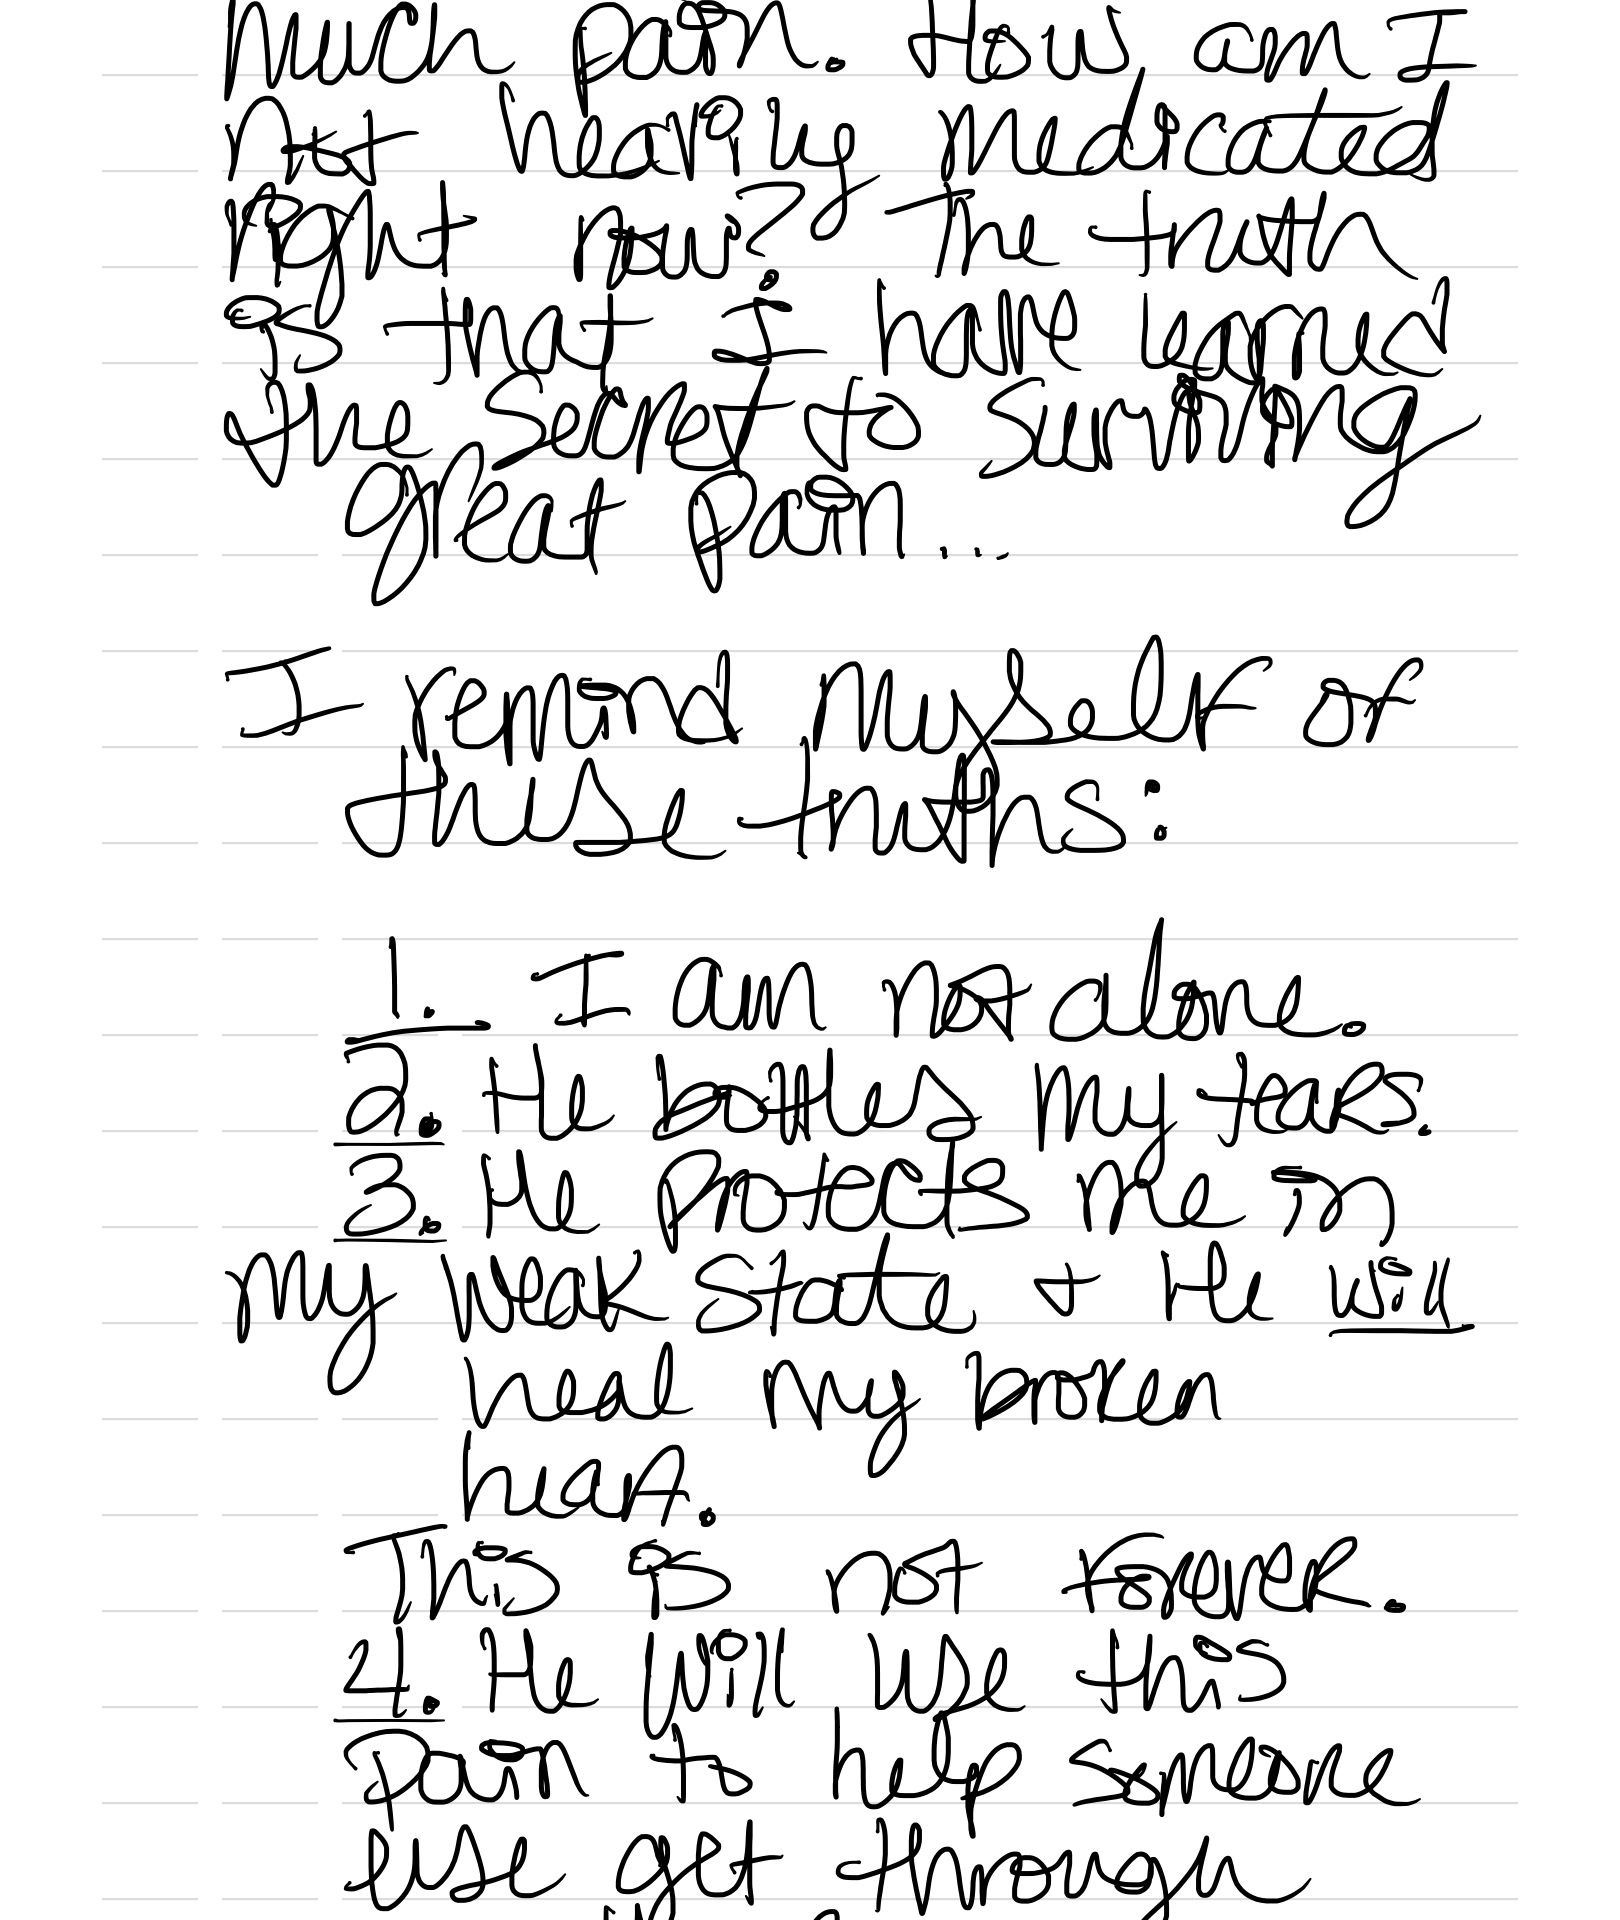 much pain. How am I
not heavily medicated
right now? The truth
is that I have learned
the secret to surviving
great pain...
I remind myself of
these truths:
1. I am not alone.
2. He bottles my tears.
3. He protects me in
my weak state + He will
heal my broken
heart.
This is not forever.
4. He will use this
pain to help someone
else get through